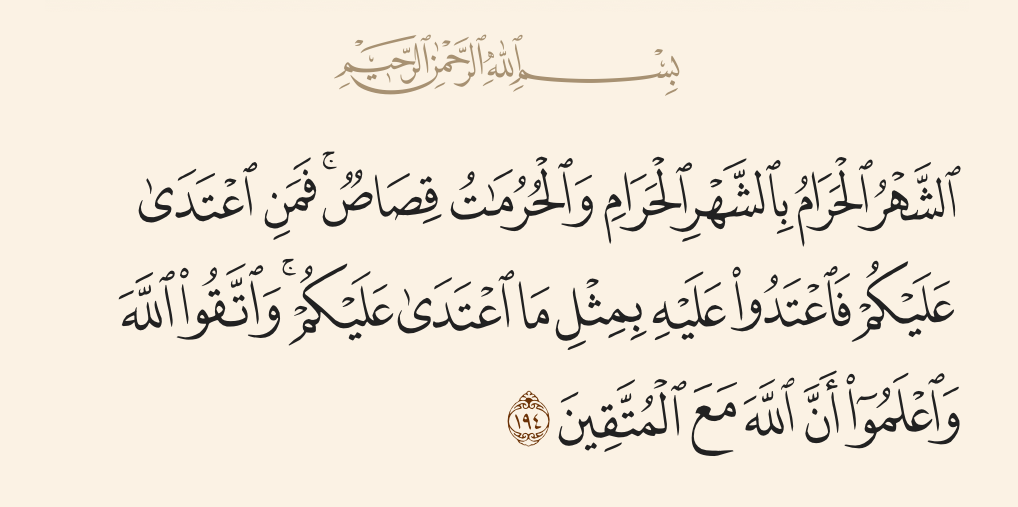 بِسْمِ ٱللَّهِ ٱلرَّحْمَٰنِ ٱلرَّحِيمِ
ٱلشَّهْرُ ٱلْحَرَامُ بِٱلشَّهْرِ ٱلْحَرَامِ وَٱلْحُرُمَٰتُ قِصَاصٌ ۚ فَمَنِ ٱعْتَدَىٰ
عَلَيْكُمْ فَٱعْتَدُوا۟ عَلَيْهِ بِمِثْلِ مَا ٱعْتَدَىٰ عَلَيْكُمْ ۚ وَٱتَّقُوا۟ ٱللَّهَ
وَٱعْلَمُوٓا۟ أَنَّ ٱللَّهَ مَعَ ٱلْمُتَّقِينَ ١٩٤